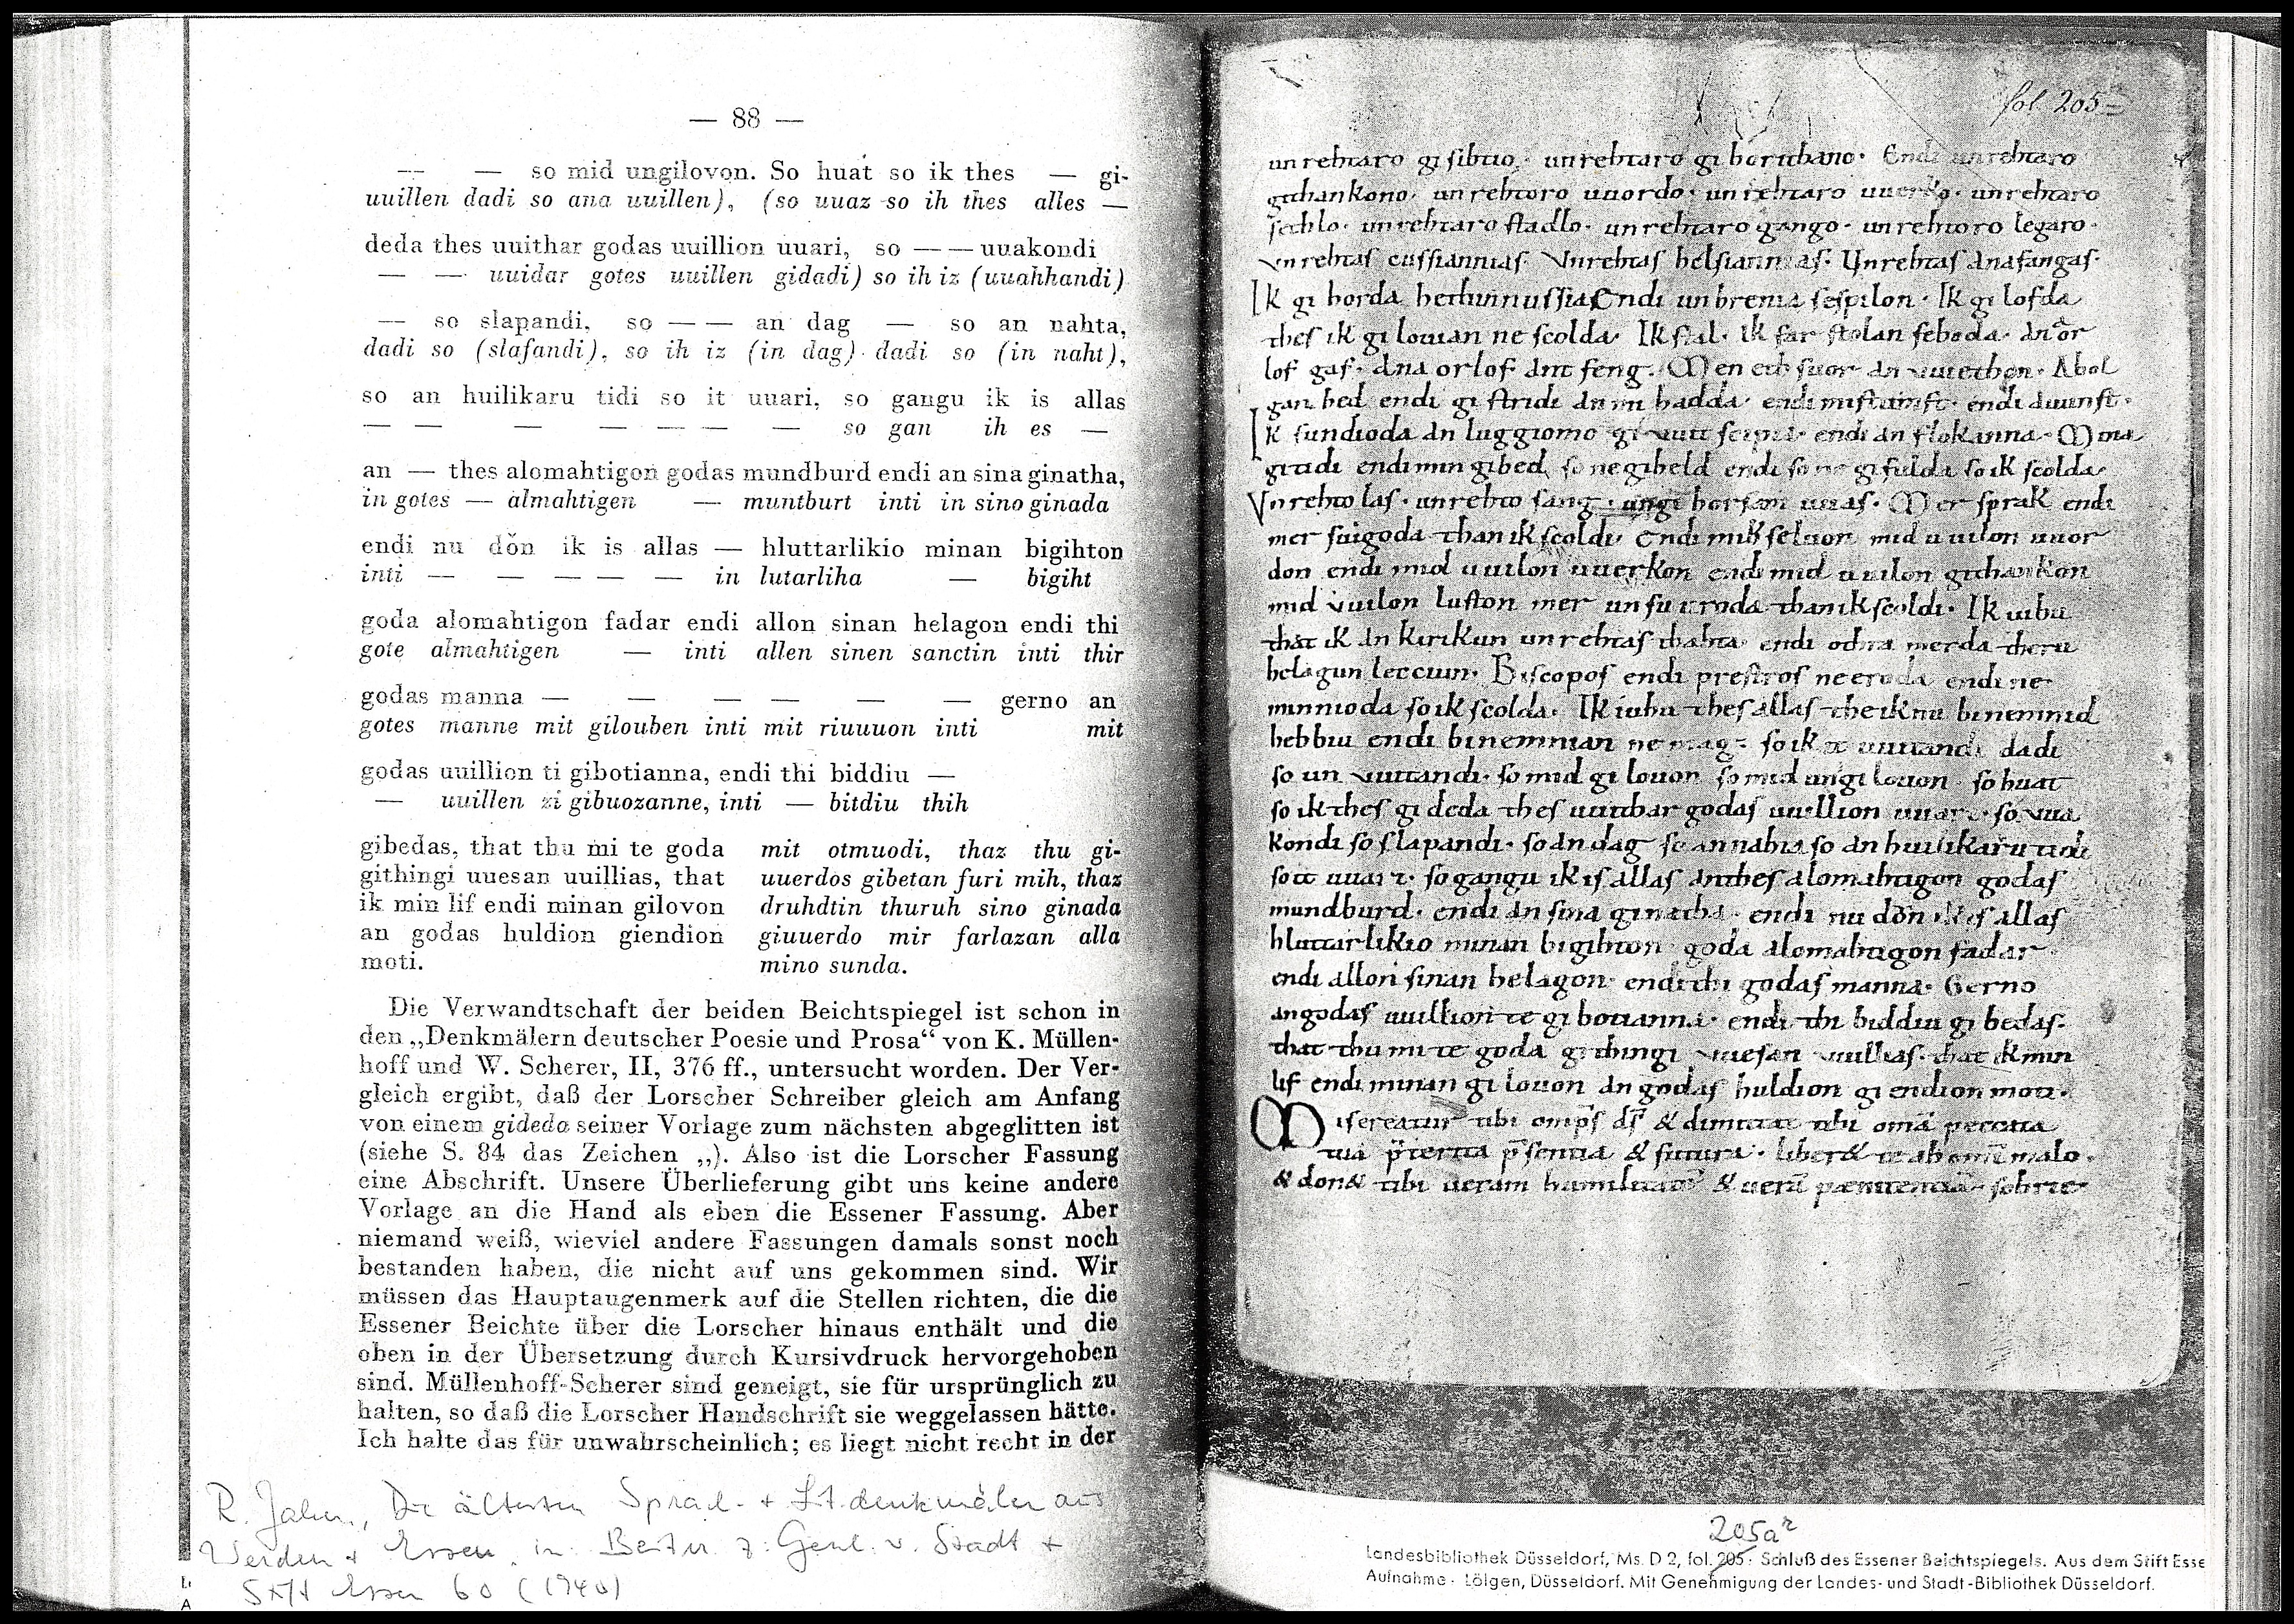 — 88 —
— — so mid ungilovon. So huat so ik thes — gi-
uuillen dadi so ana uuillen), (so uuaz so ih thes alles —
deda thes uuithar godas uuillion uuari, so — — uuakondi
— — uuidar gotes uuillen gidadi) so ih iz (uuahhandi)
— so slapandi, so — — an dag — so an nahta,
dadi so (slafandi), so ih iz (in dag) dadi so (in naht),
so an huilikaru tidi so it uuari, so gangu ik is allas
— — — — — — — so gan ih es —
an — thes alomahtigon godas mundburd endi an sina ginatha,
in gotes — almahtigen — muntburt inti in sino ginada
endi nu dǒn ik is allas — hluttarlikio minan bigihton
inti — — — — — in lutarliha — bigiht
goda alomahtigon fadar endi allon sinan helagon endi thi
gote almahtigen — inti allen sinen sanctin inti thir
godas manna — — — — — — gerno an
gotes manne mit gilouben inti mit riuuuon inti mit
godas uuillion ti gibotianna, endi thi biddiu —
— uuillen zi gibuozanne, inti — bitdiu thih
gibedas, that thu mi te goda
githingi uuesan uuillias, that
ik min lif endi minan gilovon
an godas huldion giendion
moti.
mit otmuodi, thaz thu gi-
uuerdos gibetan furi mih, thaz
druhdtin thuruh sino ginada
giuuerdo mir farlazan alla
mino sunda.
Die Verwandtschaft der beiden Beichtspiegel ist schon in
den „Denkmälern deutscher Poesie und Prosa“ von K. Müllen-
hoff und W. Scherer, II, 376 ff., untersucht worden. Der Ver-
gleich ergibt, daß der Lorscher Schreiber gleich am Anfang
von einem gideda seiner Vorlage zum nächsten abgeglitten ist
(siehe S. 84 das Zeichen „). Also ist die Lorscher Fassung
eine Abschrift. Unsere Überlieferung gibt uns keine andere
Vorlage an die Hand als eben die Essener Fassung. Aber
niemand weiß, wieviel andere Fassungen damals sonst noch
bestanden haben, die nicht auf uns gekommen sind. Wir
müssen das Hauptaugenmerk auf die Stellen richten, die die
Essener Beichte über die Lorscher hinaus enthält und die
oben in der Übersetzung durch Kursivdruck hervorgehoben
sind. Müllenhoff-Scherer sind geneigt, sie für ursprünglich zu
halten, so daß die Lorscher Handschrift sie weggelassen hätte.
Ich halte das für unwahrscheinlich; es liegt nicht recht in der
R. Jahn, Die ältesten Sprach- + Lit.denkmäler aus
Werden + Essen, in: Beitr. z. Gesch. v. Stadt +
Stift Essen 60 (1940)
fol. 205
unrehtaro gisihtio. unrehtaro gihorithano. Endi unrehtaro
githankono. unrehtoro uuordo. unrehtaro uuerko. unrehtaro
sethlo. unrehtaro stadlo. unrehtaro gango. unrehtoro legaro.
Vnrehtas cussiannias. Vnrehtas helsiannias. Unrehtas anafangas.
Ik gihorda hethinnussia Endi unhrenia sespilon. Ik gilofda
thes ik gilouian ne scolda. Ik stal. Ik far stolan fehoda. ana or
lof gaf. ana orlof antfeng. Men eth suor an uuiethon. Abol
gan hed endi gistridi an mi hadda. endi mistumft. endi auunst.
Ik sundioda an luggiomo giuuitscipia. endi an flokanna. Mina
gitidi endi min gibed so ne giheld endi so ne gifulda so ik scolda
Vnrehto las. unrehto sang. ungihorsam uuas. Mer sprak endi
mer suigoda than ik scoldi. Endi mih seluon mid uuilon uuor
don endi mid uuilon uuerkon endi mid uuilon githankon
mid uuilon luston mer unsuuroda than ik scoldi. Ik iuhu
that ik an kirikun unrehtas thahta endi othra merda theru
helagun leccium. Biscopos endi prestros ne eroda endi ne
minnioda so ik scolda. Ik iuhu thes allas the ik nu binemnid
hebbiu endi binemnian ne mag. so ik it uuitandi dadi
so unuuitandi. so mid gilouon so mid ungilouon so huat
so ik thes gideda thes uuithar godas uuillion uuari. so uua
kondi so slapandi. so an dag so an nahta so an huilikaru tidi
so it uuari. so gangu ik is allas an thes alomahtigon godas
mundburd. endi an sina ginatha. endi nu dǒn ik is allas
hluttarlikio minan bigihton goda alomahtigon fadar
endi allon sinan helagon endi thi godas manna. Gerno
an godas uuillion te gibotianna. endi thi biddiu gibedas.
that thu mi te goda githingi uuesan uuillias. that ik min
lif endi minan gilouon an godas huldion giendion moti.
Misereatur tibi omps ds & dimittat tibi omā peccata
tua pterita psentia & futura. liber& te ab omi malo.
& don& tibi ueram humilitatē & uerā paenitentiā sobrie
205a r
Landesbibliothek Düsseldorf, Ms. D 2, fol. 205. Schluß des Essener Beichtspiegels. Aus dem Stift Esse
Aufnahme: Lölgen, Düsseldorf. Mit Genehmigung der Landes- und Stadt-Bibliothek Düsseldorf.